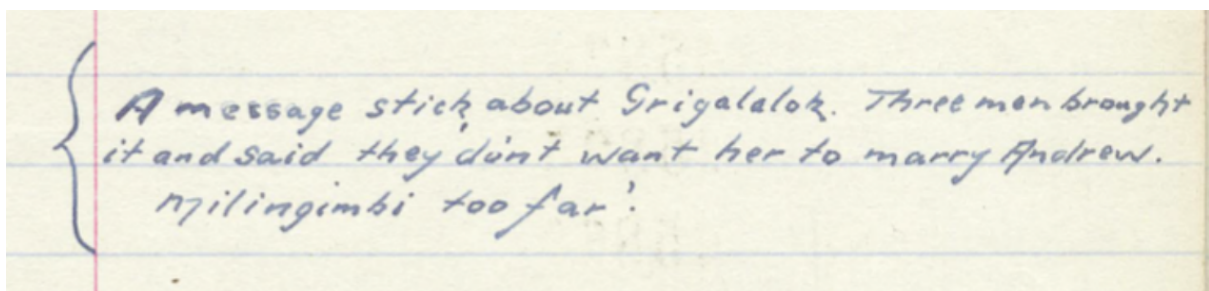 A message stick about Grigalalok. Three men brought
it and said they 'don't want her to marry Andrew.
Milingimbi too far'.